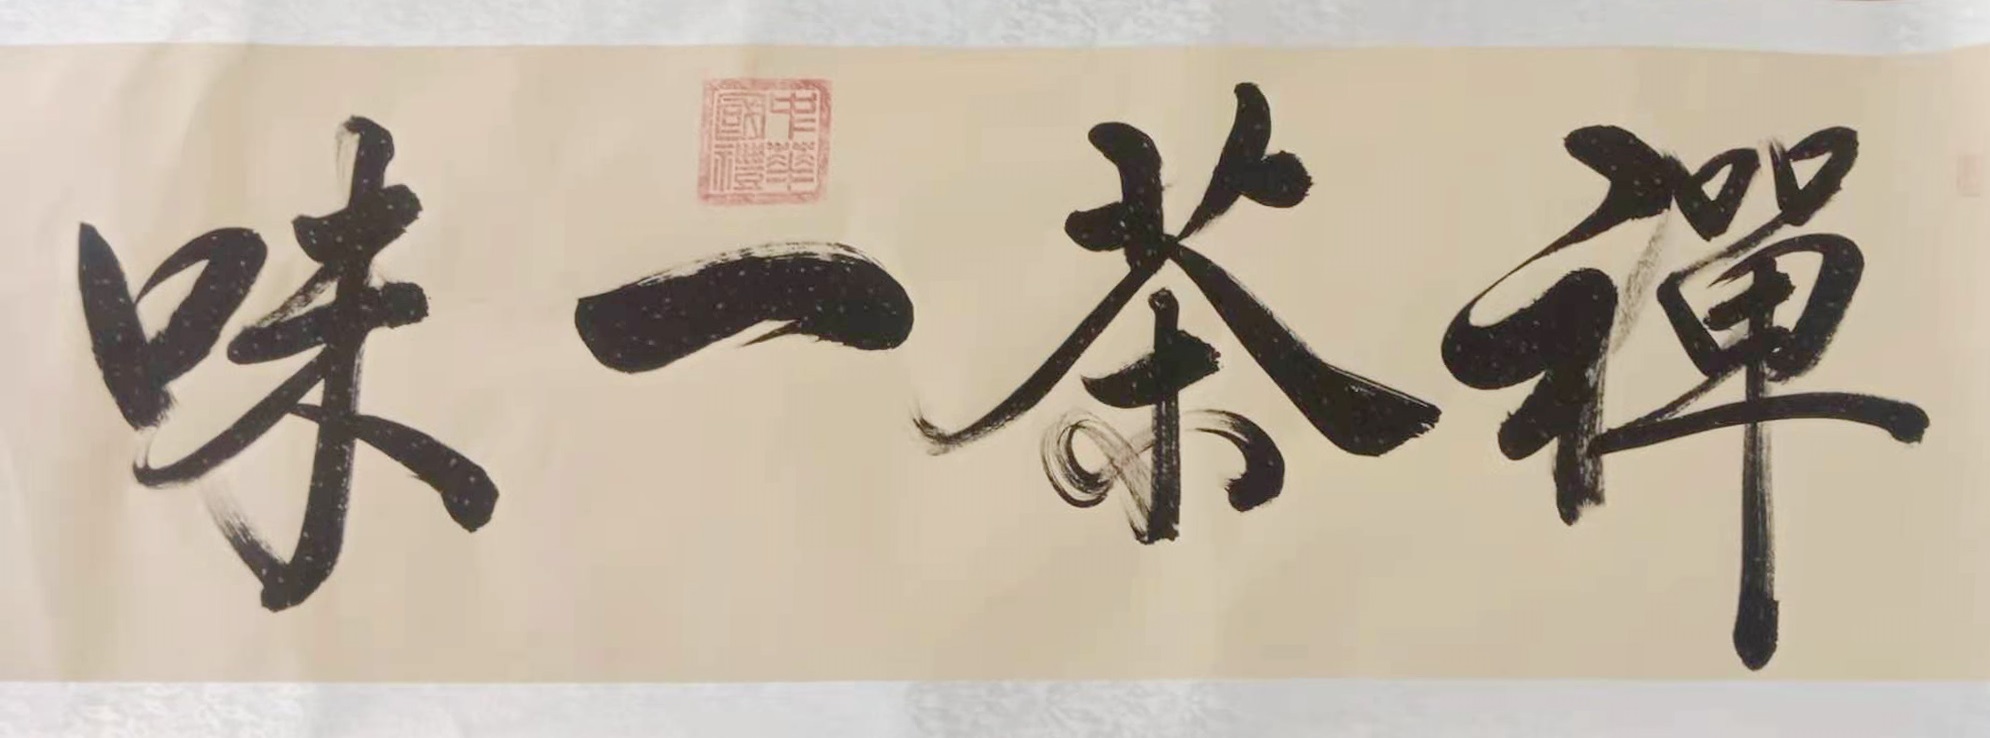 禪茶一味
中華國禮